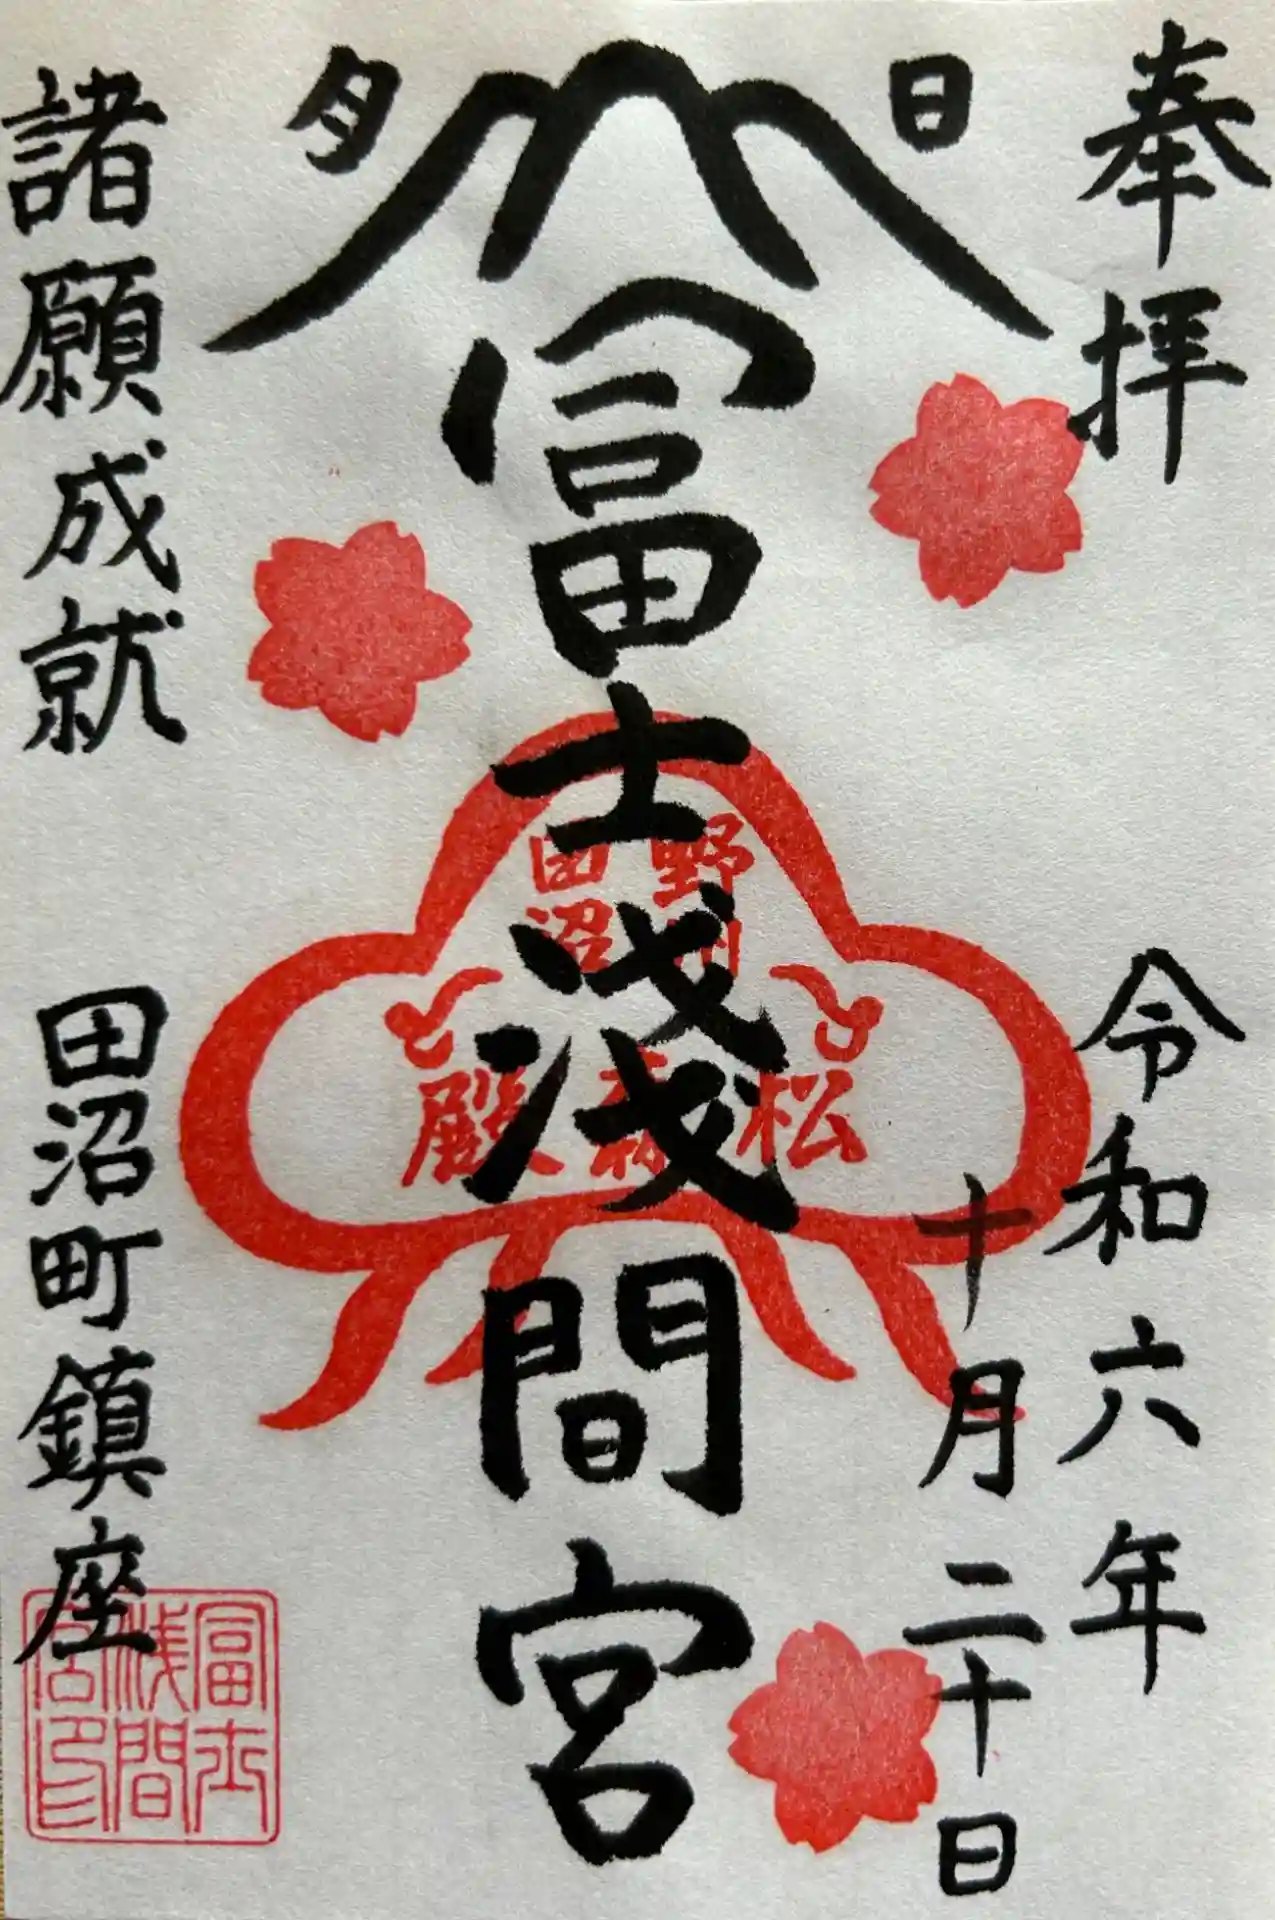 奉拝
令和六年
十月二十日
日
月
冨士浅間宮
諸願成就
田沼町鎮座
野州
田沼
松森殿
冨士
浅間
宮印